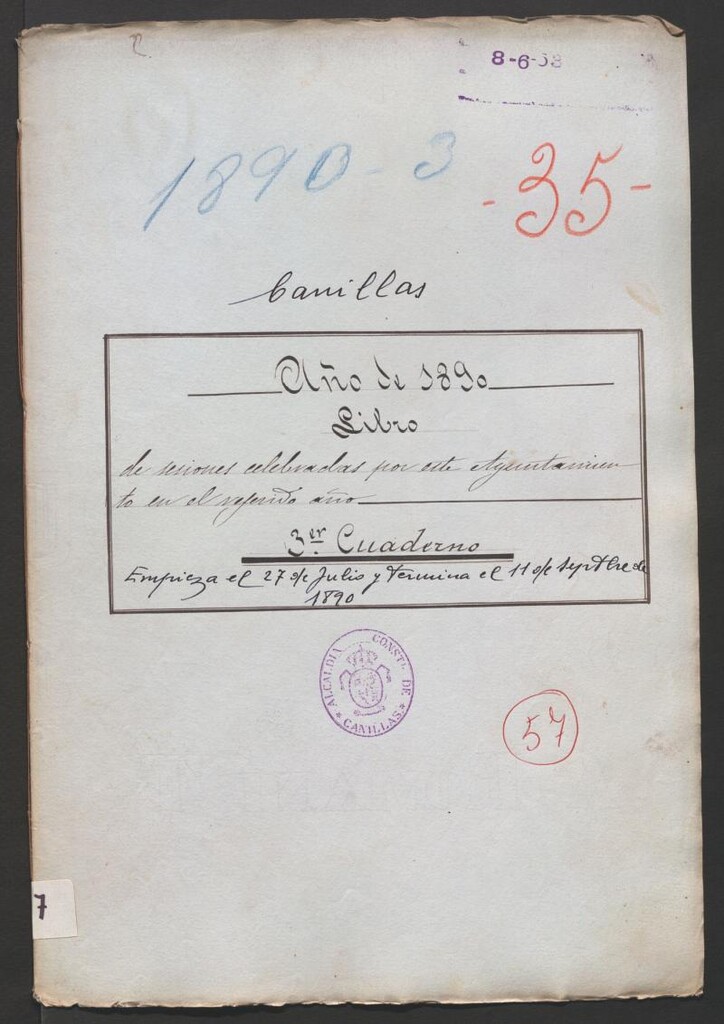 8-6-
1890-3
-35-
Canillas
Año de 1890
Libro
de sesiones celebradas por este Ayuntamien
to en el referido año
3er Cuaderno
Empieza el 27 de Julio y termina el 11 de Septbre de
1890
ALCALDIA CONSTL. DE
* CANILLAS. *
57
7